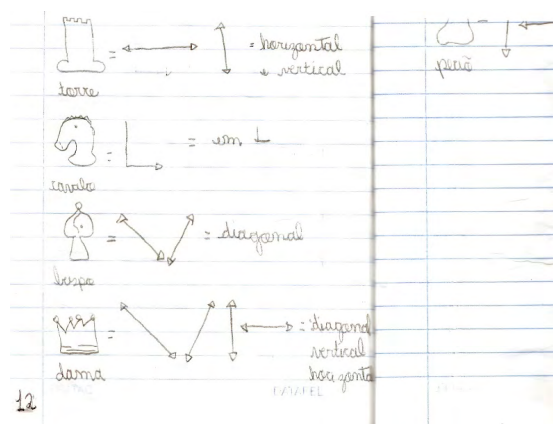 = horizontal
e vertical
torre
= em L
cavalo
= diagonal
bispo
= diagonal
vertical
horizonta
dama
12
peão